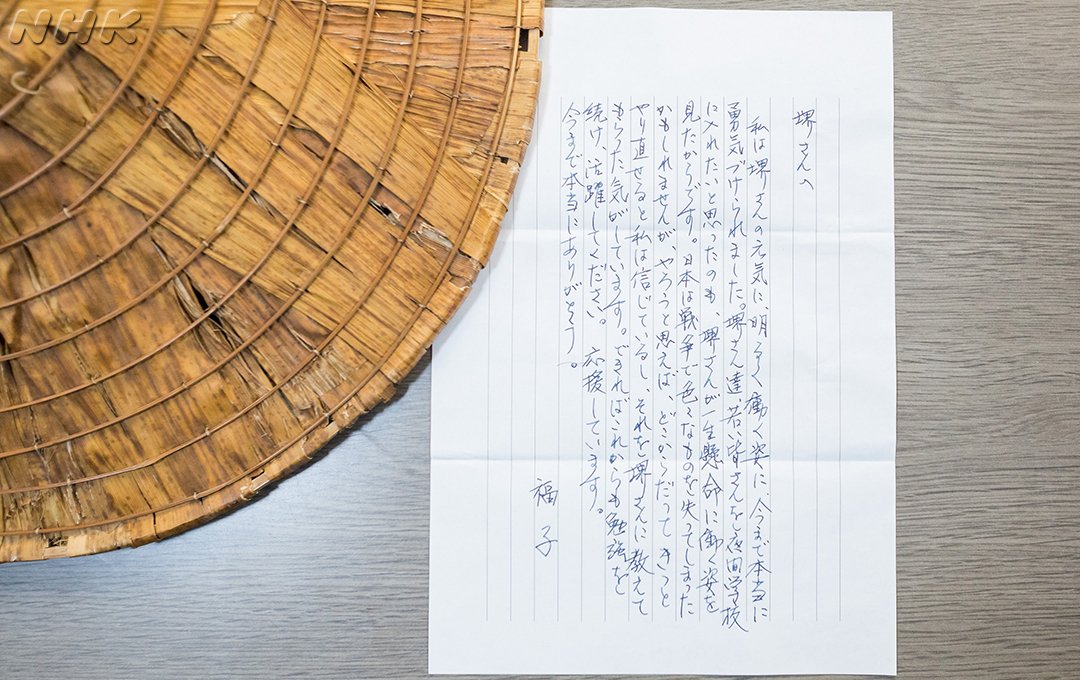 NHK
堺さんへ
私は堺さんの元気に、明るく働く姿に、今まで本当に
勇気づけられました。堺さん達、若い皆さんを夜間学校
に入れたいと思ったのも、堺さんが一生懸命に働く姿を
見たからです。日本は戦争で色々なものを失ってしまった
かもしれませんが、やろうと思えば、どこからだってきっと
やり直せると私は信じているし、それを堺さんに教えて
もらった気がしています。できればこれからも勉強を
続け、活躍してください。応援しています。
今まで本当にありがとう。
福子